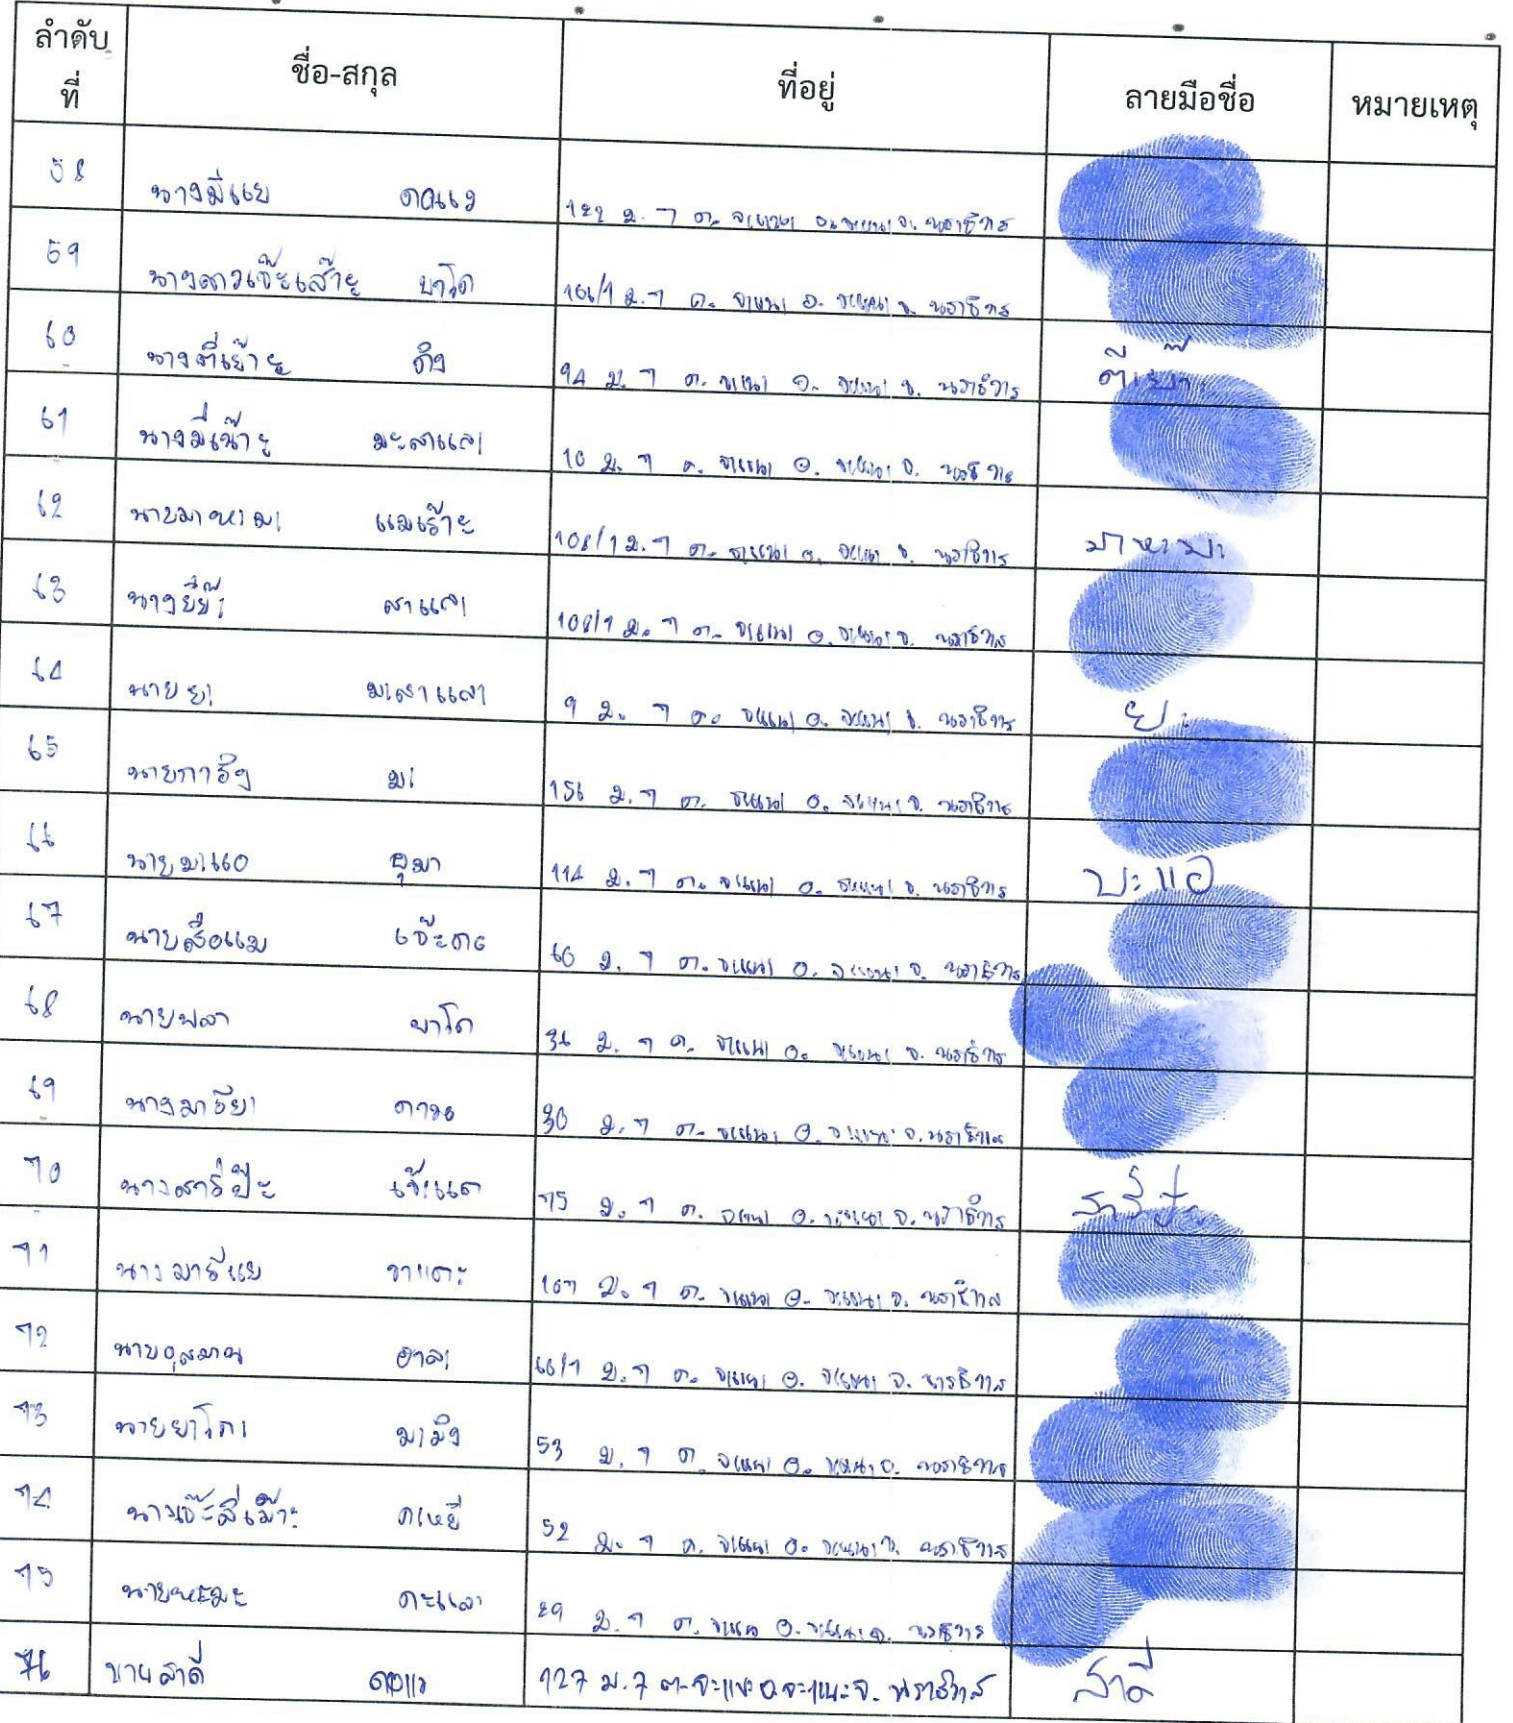 ลำดับที่ ชื่อ-สกุล ที่อยู่ ลายมือชื่อ หมายเหตุ
58 นางมีแย
59 นางสาวเจ๊ะเส๊าะ บาโด 166/1 ม.7 ต. จะแนะ อ. จะแนะ จ. นราธิวาส
60 นางตีเย๊าะ ดิง 94 ม. 7 ต. จะแนะ อ. จะแนะ จ. นราธิวาส ตีเย๊าะ
61 นางมีเน๊าะ มะสาแล 10 ม. 7 ต. จะแนะ อ. จะแนะ จ. นราธิวาส
62 นายมาหามะ แมเร๊าะ 108/1 ม. 7 ต. จะแนะ อ. จะแนะ จ. นราธิวาส มาหามะ
63 สาและ 108/1 ม. 7 ต. จะแนะ อ. จะแนะ จ. นราธิวาส
64 นายยะ มะสาแล 9 ม. 7 ต. จะแนะ อ. จะแนะ จ. นราธิวาส ยะ
65 นายการิง มะ 156 ม. 7 ต. จะแนะ อ. จะแนะ จ. นราธิวาส
66 114 ม. 7 ต. จะแนะ อ. จะแนะ จ. นราธิวาส บะแอ
67 นายสือแม 60 ม. 7 ต. จะแนะ อ. จะแนะ จ. นราธิวาส
68 บาโด 36 ม. 7 ต. จะแนะ อ. จะแนะ จ. นราธิวาส
69 นางมารียะ 30 ม. 7 ต. จะแนะ อ. จะแนะ จ. นราธิวาส
70 นางสารีป๊ะ 75 ม. 7 ต. จะแนะ อ. จะแนะ จ. นราธิวาส สารีป๊ะ
71 นางมารีแย 167 ม. 7 ต. จะแนะ อ. จะแนะ จ. นราธิวาส
72 นายอุสมาน อาสะ 66/1 ม. 7 ต. จะแนะ อ. จะแนะ จ. นราธิวาส
73 มะมิง 53 ม. 7 ต. จะแนะ อ. จะแนะ จ. นราธิวาส
74 52 ม. 7 ต. จะแนะ อ. จะแนะ จ. นราธิวาส
75 29 ม. 7 ต. จะแนะ อ. จะแนะ จ. นราธิวาส
76 นายสาดี 127 ม.7 ต.จะแนะ อ.จะแนะ จ. นราธิวาส สาดี